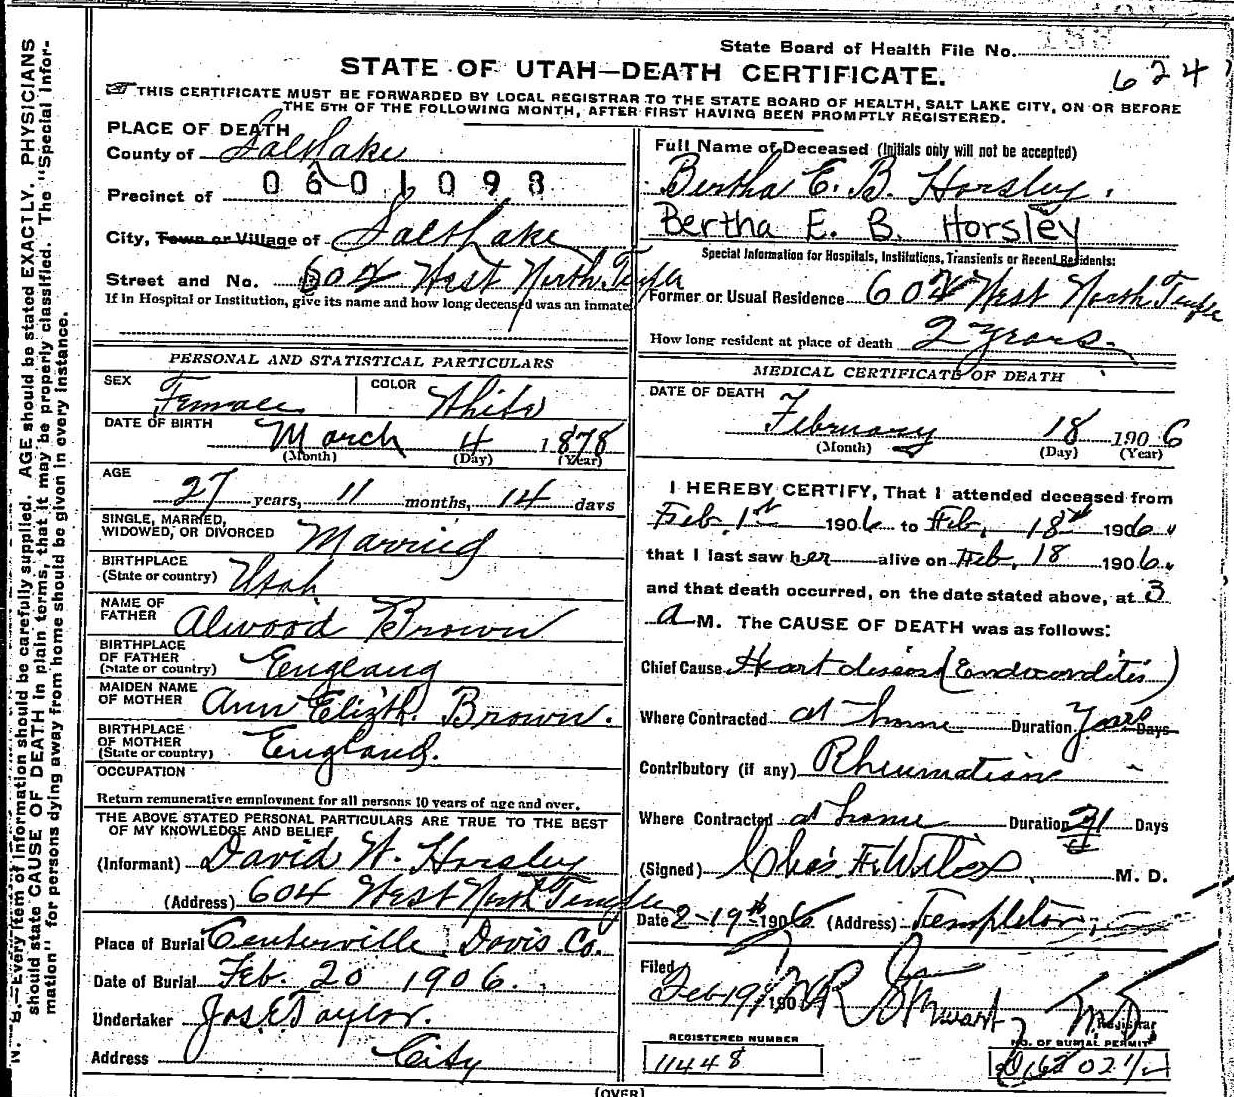 State Board of Health File No. 188
624
STATE OF UTAH—DEATH CERTIFICATE.
THIS CERTIFICATE MUST BE FORWARDED BY LOCAL REGISTRAR TO THE STATE BOARD OF HEALTH, SALT LAKE CITY, ON OR BEFORE
THE 5TH OF THE FOLLOWING MONTH, AFTER FIRST HAVING BEEN PROMPTLY REGISTERED.
PLACE OF DEATH
County of Salt Lake
0601098
Precinct of
City, Town or Village of Salt Lake
Street and No. 604 West North Temple
If in Hospital or Institution, give its name and how long deceased was an inmate
PERSONAL AND STATISTICAL PARTICULARS
SEX Female COLOR White
DATE OF BIRTH March 4 1878
(Month) (Day) (Year)
AGE
27 years, 11 months, 14 days
SINGLE, MARRIED,
WIDOWED, OR DIVORCED Married
BIRTHPLACE
(State or country) Utah
NAME OF
FATHER Alwood Brown
BIRTHPLACE
OF FATHER
(State or country) England
MAIDEN NAME
OF MOTHER Ann Elizth. Brown.
BIRTHPLACE
OF MOTHER
(State or country) England.
OCCUPATION
Return remunerative employment for all persons 10 years of age and over.
THE ABOVE STATED PERSONAL PARTICULARS ARE TRUE TO THE BEST
OF MY KNOWLEDGE AND BELIEF
(Informant) David W. Horsley
(Address) 604 West North Temple
Place of Burial Centerville Davis Co.
Date of Burial Feb. 20 1906.
Undertaker Jos. E Taylor.
Address City
Full Name of Deceased (Initials only will not be accepted)
Bertha E. B. Horsley.
Bertha E. B. Horsley
Special Information for Hospitals, Institutions, Transients or Recent Residents:
Former or Usual Residence 604 West North Temple
How long resident at place of death 2 years.
MEDICAL CERTIFICATE OF DEATH
DATE OF DEATH
February 18 1906
(Month) (Day) (Year)
I HEREBY CERTIFY, That I attended deceased from
Feb. 1st 1906 to Feb. 18th 1906
that I last saw her alive on Feb. 18 1906
and that death occurred, on the date stated above, at 3
a M. The CAUSE OF DEATH was as follows:
Chief Cause Heart disease (Endocarditis)
Where Contracted at home Duration years Days
Contributory (if any) Rheumatism
Where Contracted at home Duration 21 Days
(Signed) Chas. F. Wilcox M. D.
Date 2-19th 1906 (Address) Templeton
Filed
Feb 19 190 Stewart M.D.
Registrar
REGISTERED NUMBER
11448
NO. OF BURIAL PERMIT
N. B.—Every item of information should be carefully supplied. AGE should be stated EXACTLY. PHYSICIANS
should state CAUSE OF DEATH in plain terms, that it may be properly classified. The "Special Infor-
mation" for persons dying away from home should be given in every instance.
(OVER)